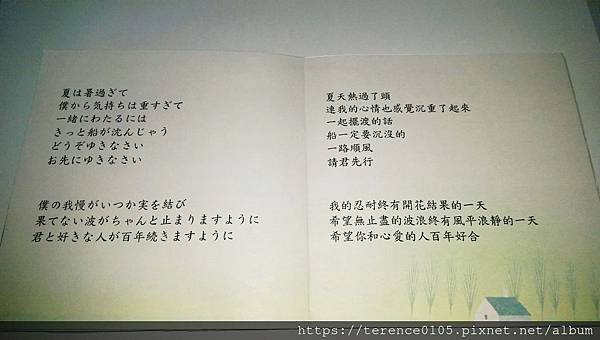 夏は暑過ぎて
僕から気持ちは重すぎて
一緒にわたるには
きっと船が沈んじゃう
どうぞゆきなさい
お先にゆきなさい
僕の我慢がいつか実を結び
果てない波がちゃんと止まりますように
君と好きな人が百年続きますように
夏天熱過了頭
連我的心情也感覺沉重了起來
一起擺渡的話
船一定要沉沒的
一路順風
請君先行
我的忍耐終有開花結果的一天
希望無止盡的波浪終有風平浪靜的一天
希望你和心愛的人百年好合
https://terence0105.pixnet.net/album